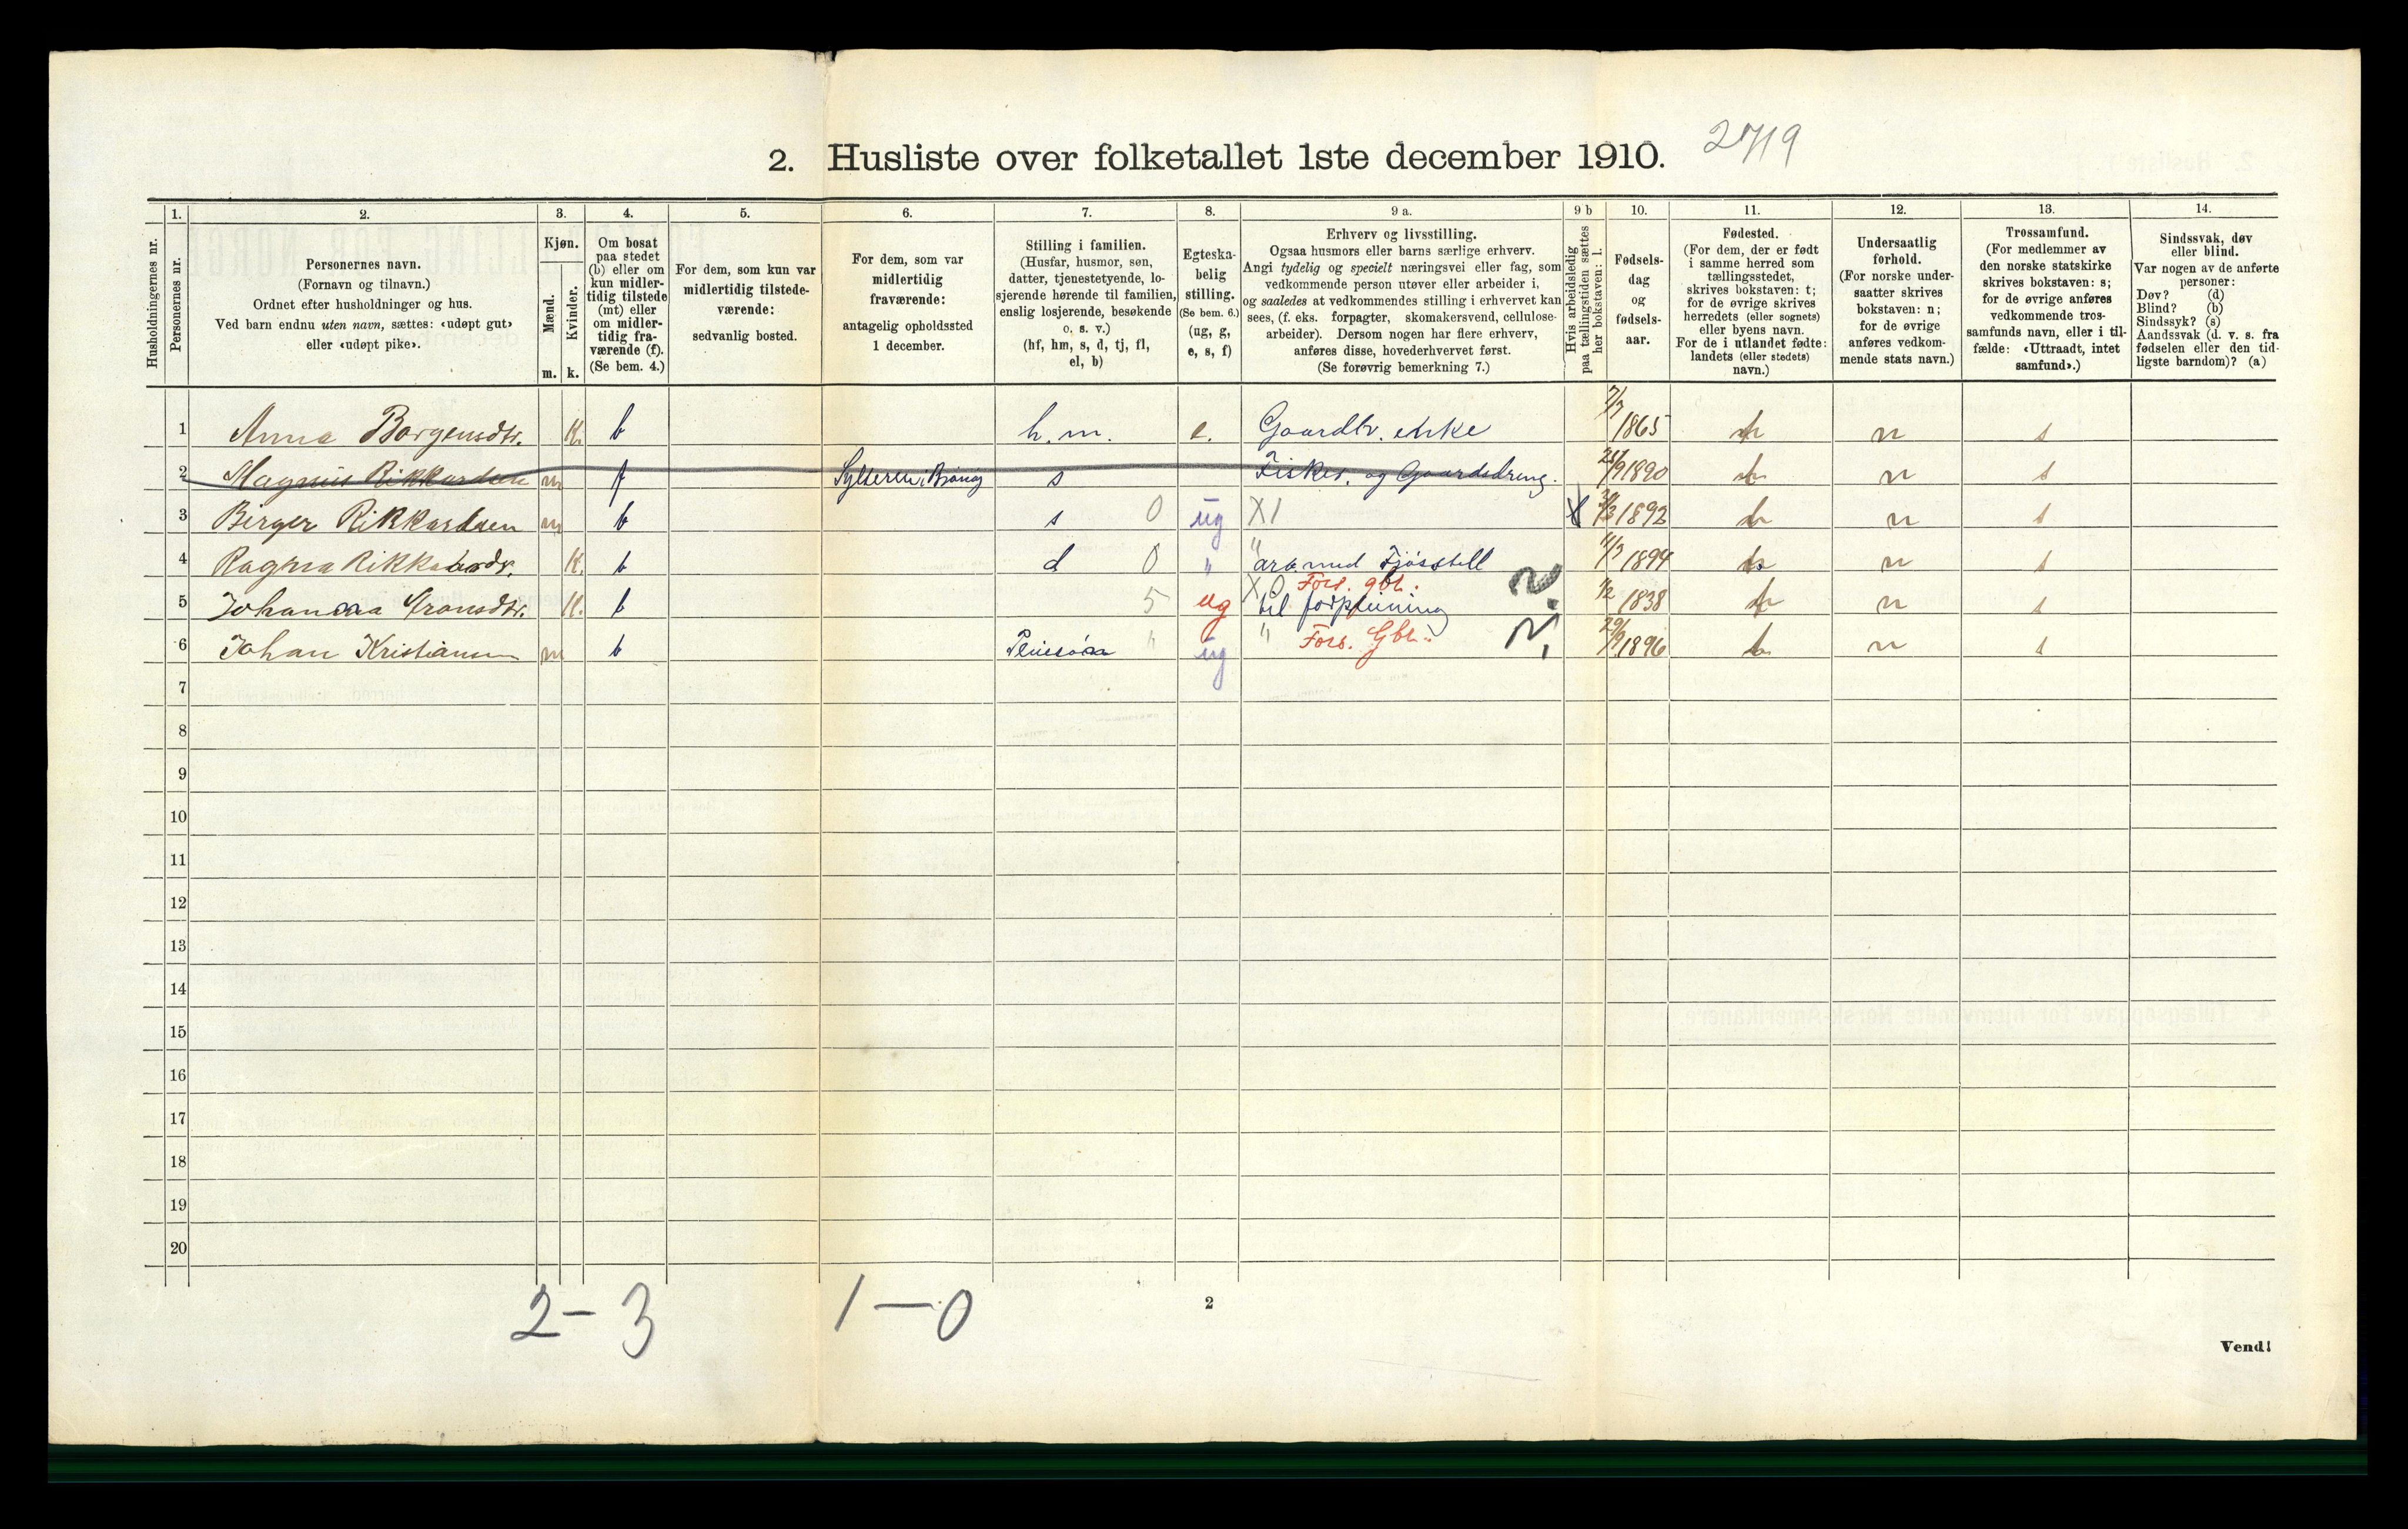 2. Husliste over folketallet 1ste december 1910. 2719
1. 2. 3. 4. 5. 6. 7. 8. 9 a. 9 b 10. 11. 12. 13. 14.
Husholdningernes nr.
Personernes nr.
Personernes navn.
(Fornavn og tilnavn.)
Ordnet efter husholdninger og hus.
Ved barn endnu uten navn, sættes: «udøpt gut»
eller «udøpt pike».
Kjøn.
Mænd.
Kvinder.
m. k.
Om bosat
paa stedet
(b) eller om
kun midler-
tidig tilstede
(mt) eller
om midler-
tidig fra-
værende (f).
(Se bem. 4.)
For dem, som kun var
midlertidig tilstede-
værende:
sedvanlig bosted.
For dem, som var
midlertidig
fraværende:
antagelig opholdssted
1 december.
Stilling i familien.
(Husfar, husmor, søn,
datter, tjenestetyende, lo-
sjerende hørende til familien,
enslig losjerende, besøkende
o. s. v.)
(hf, hm, s, d, tj, fl,
el, b)
Egteska-
belig
stilling.
(Se bem. 6.)
(ug, g,
e, s, f)
Erhverv og livsstilling.
Ogsaa husmors eller barns særlige erhverv.
Angi tydelig og specielt næringsvei eller fag, som
vedkommende person utøver eller arbeider i,
og saaledes at vedkommendes stilling i erhvervet kan
sees, (f. eks. forpagter, skomakersvend, cellulose-
arbeider). Dersom nogen har flere erhverv,
anføres disse, hovederhvervet først.
(Se forøvrig bemerkning 7.)
Hvis arbeidsledig
paa tællingstiden sættes
her bokstaven: l.
Fødsels-
dag
og
fødsels-
aar.
Fødested.
(For dem, der er født
i samme herred som
tællingsstedet,
skrives bokstaven: t;
for de øvrige skrives
herredets (eller sognets)
eller byens navn.
For de i utlandet fødte:
landets (eller stedets)
navn.)
Undersaatlig
forhold.
(For norske under-
saatter skrives
bokstaven: n;
for de øvrige
anføres vedkom-
mende stats navn.)
Trossamfund.
(For medlemmer av
den norske statskirke
skrives bokstaven: s;
for de øvrige anføres
vedkommende tros-
samfunds navn, eller i til-
fælde: «Uttraadt, intet
samfund».)
Sindssvak, døv
eller blind.
Var nogen av de anførte
personer:
Døv? (d)
Blind? (b)
Sindssyk? (s)
Aandssvak (d. v. s. fra
fødselen eller den tid-
ligste barndom)? (a)
1 Anna Borgensdtr. K. b h.m. e. Gaardbr. enke 7/7 1865 t n s
2 Magnus Rikkardsen m f s Fisker. og Gaardsdreng. 1890 t n s
3 Birger Rikkardsen m b s 0 ug X1 1892 t n s
4 Ragna Rikkardsdr. K. b d 0 " " arb med Fjøsstell 11/3 1894 t n s
5 Johanna K. b 5 ug X0 Fors. gbr. til forpleining 1/2 1838 t n s
6 Johan Kristiansen m b Pleiesøn " ug " Fors. Gbr. 29/9 1896 t n s
7
8
9
10
11
12
13
14
15
16
17
18
19
20
2 – 3 1 – 0
2
Vend!